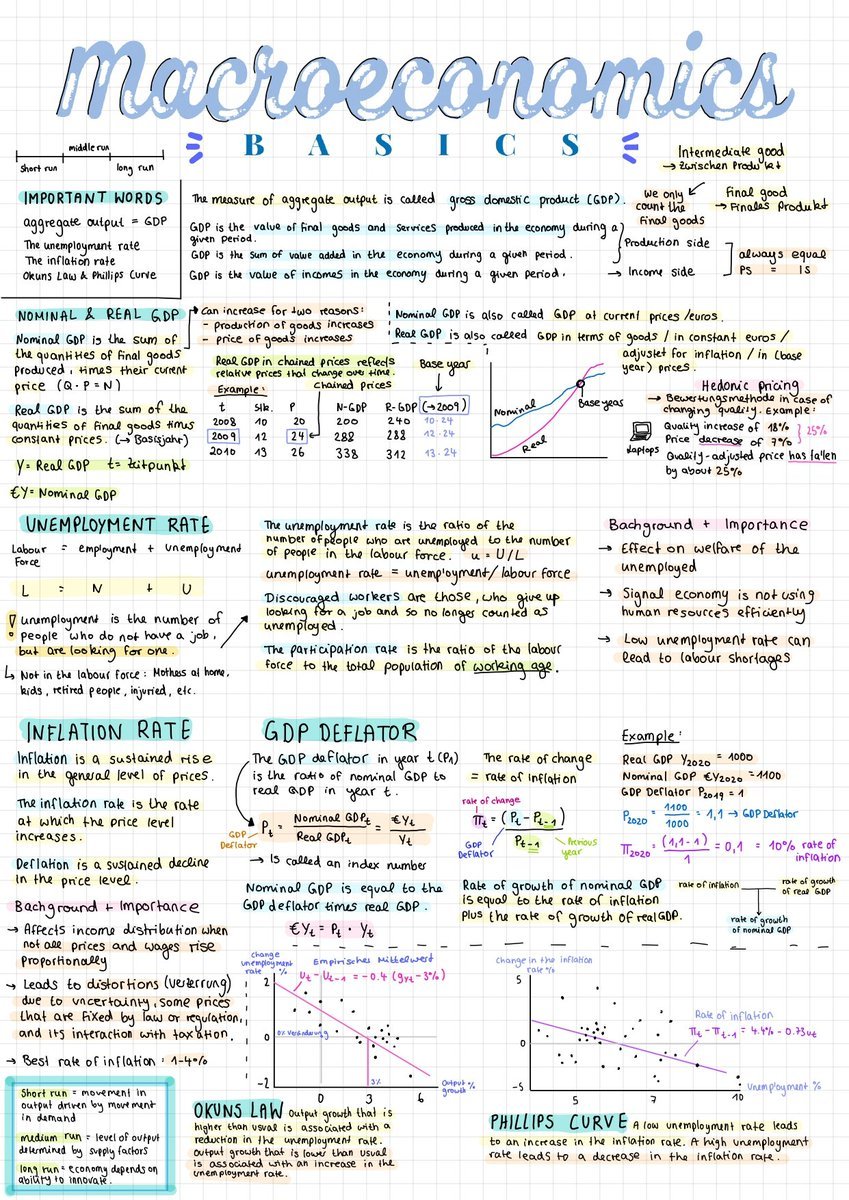 Macroeconomics
BASICS
middle run
short run
long run
Intermediate good
→ Zwischen Produkt
IMPORTANT WORDS
aggregate output = GDP
The unemployment rate
The inflation rate
Okuns Law & Phillips Curve
The measure of aggregate output is called gross domestic product (GDP).
GDP is the value of final goods and services produced in the economy during a
given period.
GDP is the sum of value added in the economy during a given period.
GDP is the value of incomes in the economy during a given period.
we only
count the
final goods
Final good
→ Finales Produkt
Production side
→ Income side
always equal
PS = IS
NOMINAL & REAL GDP
Nominal GDP is the sum of
the quantities of final goods
produced, times their current
price (Q · P = N)
Real GDP is the sum of the
quantities of final goods times
constant prices. (→ Basisjahr)
Y = Real GDP t = Zeitpunkt
€Y = Nominal GDP
can increase for two reasons:
- production of goods increases
- price of goods increases
Nominal GDP is also called GDP at current prices/euros.
Real GDP is also called GDP in terms of goods / in constant euros /
adjustet for inflation / in (base
year) prices.
Real GDP in chained prices reflects
relative prices that change over time.
Example:
chained prices
Base year
t Stk. P N-GDP R-GDP (→2009)
2008 10 20 200 240 10·24
2009 12 24 288 288 12·24
2010 13 26 338 312 13·24
Nominal
Real
Base year
Hedonic Pricing
→ Bewertungsmethode in case of
changing quality. Example:
Laptops
Quality increase of 18%
Price decrease of 7%
25%
Quality-adjusted price has fallen
by about 25%
UNEMPLOYMENT RATE
Labour = employment + unemployment
Force
L = N + U
! unemployment is the number of
people who do not have a job,
but are looking for one.
↳ Not in the labour force: Mothers at home,
kids, retired people, injuried, etc.
The unemployment rate is the ratio of the
number of people who are unemployed to the number
of people in the labour force. u = U/L
unemployment rate = unemployment/labour force
Discouraged workers are those, who give up
looking for a job and so no longer counted as
unemployed.
The participation rate is the ratio of the labour
force to the total population of working age.
Background + Importance
→ Effect on welfare of the
unemployed
→ Signal economy is not using
human resources efficiently
→ Low unemployment rate can
lead to labour shortages
INFLATION RATE
Inflation is a sustained rise
in the general level of prices.
The inflation rate is the rate
at which the price level
increases.
Deflation is a sustained decline
in the price level.
Background + Importance
→ Affects income distribution when
not all prices and wages rise
proportionally
→ Leads to distortions (Verzerrung)
due to uncertainty, some prices
that are fixed by law or regulation,
and its interaction with taxation.
→ Best rate of inflation: 1-4%
GDP DEFLATOR
The GDP deflator in year t (P₁)
is the ratio of nominal GDP to
real GDP in year t.
GDP
Deflator
Pt = Nominal GDPt / Real GDPt = €Yt / Yt
→ Is called an index number
Nominal GDP is equal to the
GDP deflator times real GDP.
€Yt = Pt · Yt
The rate of change
= rate of inflation
rate of change
πt = (Pt - Pt-1) / Pt-1
GDP
Deflator
Previous
year
Rate of growth of nominal GDP
is equal to the rate of inflation
plus the rate of growth of real GDP.
Example:
Real GDP Y2020 = 1000
Nominal GDP €Y2020 = 1100
GDP Deflator P2019 = 1
P2020 = 1100/1000 = 1,1 → GDP Deflator
π2020 = (1,1-1)/1 = 0,1 = 10% rate of
inflation
rate of inflation
rate of growth
of real GDP
rate of growth
of nominal GDP
change
unemployment
rate %
Empirisches Mittelwert
Ut - Ut-1 = -0.4 (gyt - 3%)
2
0% Veränderung
0
-2
0 3 6
3%
Output %
growth
Change in the inflation
rate %
5
0
-5
5 7 10
Rate of inflation
πt - πt-1 = 4.4% - 0.73ut
Unemployment %
short run = movement in
output driven by movement
in demand
medium run = level of output
determined by supply factors
long run = economy depends on
ability to innovate.
OKUNS LAW Output growth that is
higher than usual is associated with a
reduction in the unemployment rate.
Output growth that is lower than usual
is associated with an increase in the
unemployment rate.
PHILLIPS CURVE A low unemployment rate leads
to an increase in the inflation rate. A high unemployment
rate leads to a decrease in the inflation rate.